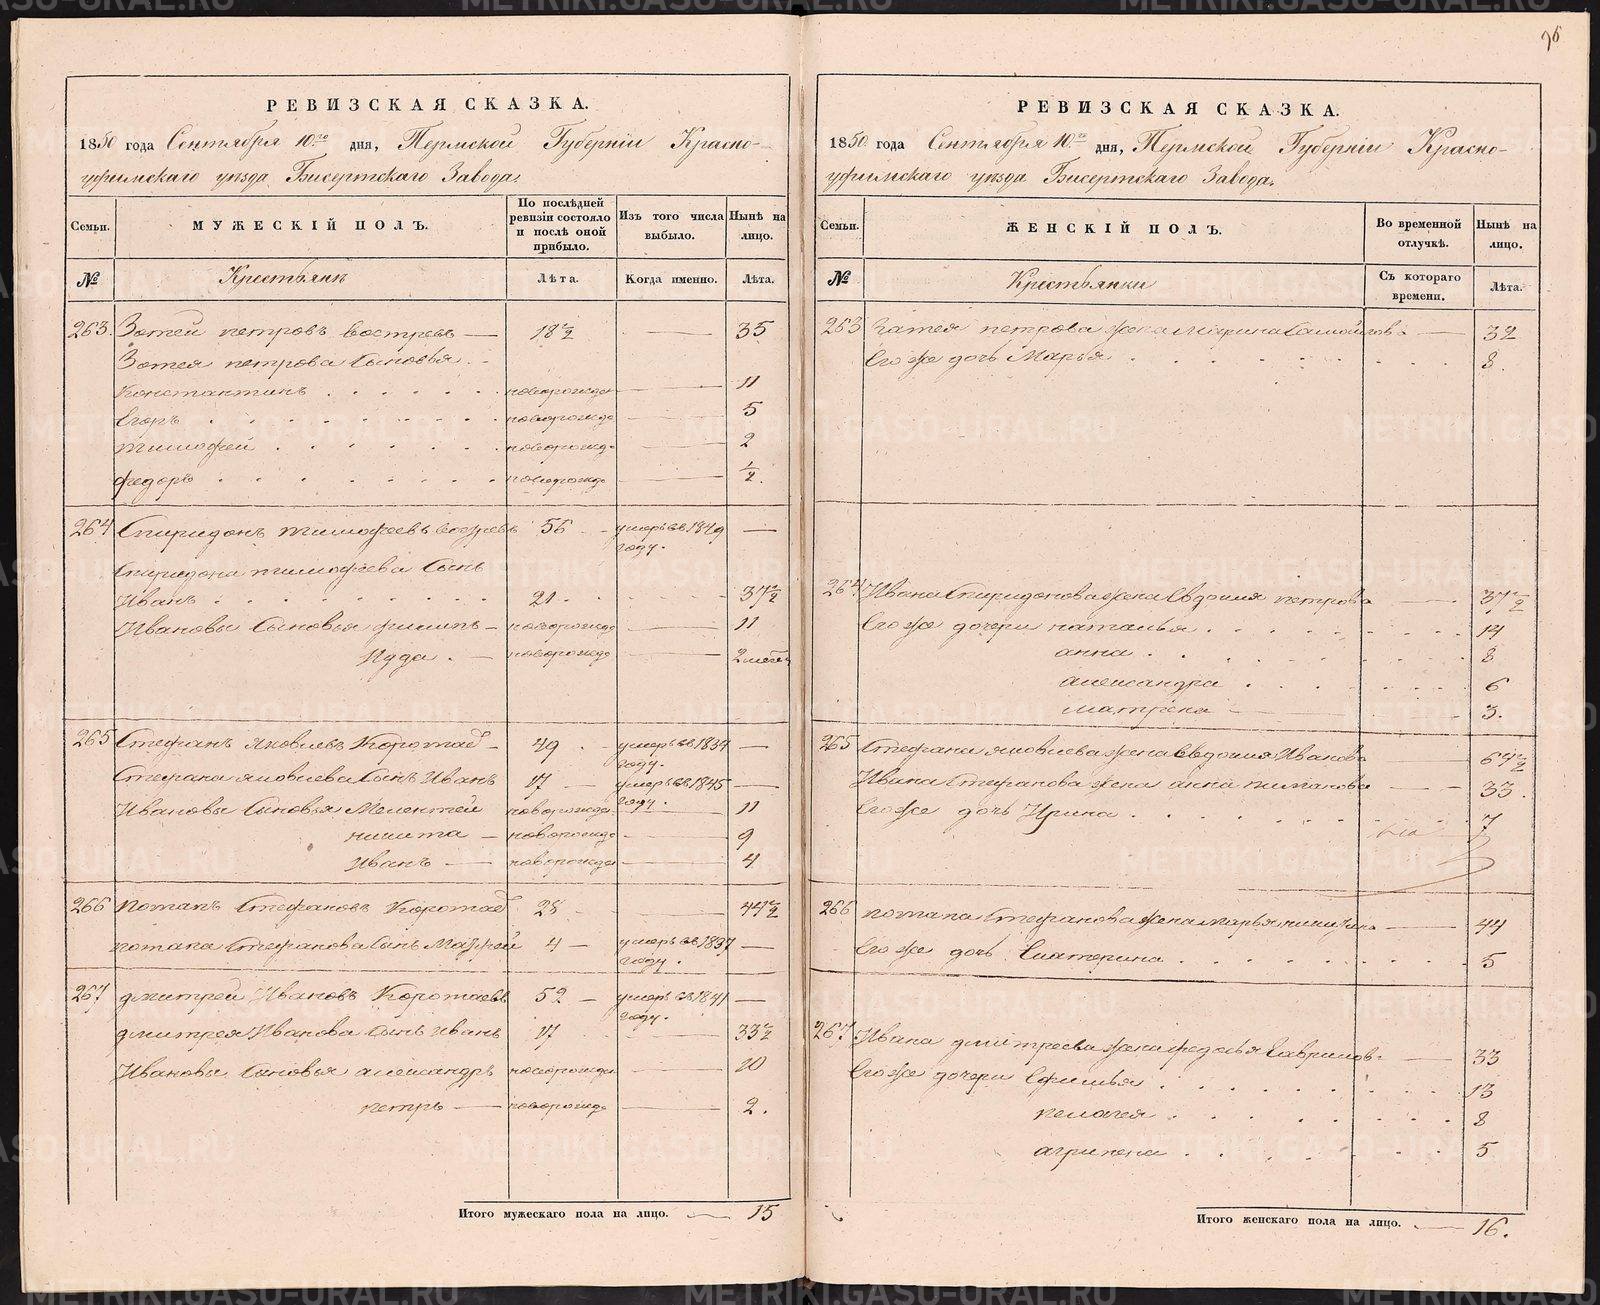 96
РЕВИЗСКАЯ СКАЗКА.
1850 года Сентября 10го дня, Пермской Губерніи Красно-
уфимскаго уезда Бисертскаго Завода.
Семьи.
МУЖЕСКІЙ ПОЛЪ.
По послѣдней ревизіи состояло и послѣ оной прибыло.
Изъ того числа выбыло.
Нынѣ на лицо.
№
Крестьянъ
Лѣта.
Когда именно.
Лѣта.
263. Зотей петровъ 18½ 35
Зотея петрова Сыновья
Константинъ новорожде 11
Егоръ новорожде 5
тимофей новорожд 2
федоръ новорожде ½.
264 Спиридонъ тимофеевъ 56 умеръ въ 1849 году.
Спиридона тимофеева Сынъ
Иванъ 21 37½
Ивановы Сыновья филипъ новорожде 11
Иуда новорожде
265 Стефанъ яковлевъ 49 умеръ въ 1839 году.
Стефана яковлева Сынъ Иванъ 17 умеръ въ 1845 году.
Ивановы Сыновья Мелентей новорожде 11
никита новорожде 9
Иванъ новорожде 4
266 потапъ Стефановъ 28 44½
потапа Стефанова Сынъ 4 умеръ въ 1837 году.
267 дмитрей Ивановъ Коротаевъ 52 умеръ въ 1841 году.
дмитрея Иванова Сынъ иванъ 17 33½
Ивановы Сыновья александръ новорожден 10
петръ новорожде 2.
Итого мужескаго пола на лицо. 15
РЕВИЗСКАЯ СКАЗКА.
1850 года Сентября 10го дня, Пермской Губерніи Красно-
уфимскаго уезда Бисертскаго Завода.
Семьи.
ЖЕНСКІЙ ПОЛЪ.
Во временной отлучкѣ.
Нынѣ на лицо.
№
Крестьянки
Съ котораго времени.
Лѣта.
263 Зотея петрова жена 32
Его же дочь Марья 8.
264 Ивана Спиридонова жена Евдокия петрова 37½
Его же дочери наталья 14
анна 8
александра 6
матрена 3.
265 Стефана яковлева жена Евдокия Иванова 64½
Ивана Стефанова жена анна 33.
Его же дочь Ирина 7
266 потапа Стефанова жена марья 44
Его же дочь Екатерина 5
267. Ивана дмитреева жена федосья Гаврилов. 33
Его же дочери 13
пелагея 8
агрипена 5
Итого женскаго пола на лицо. 16.
METRIKI.GASO-URAL.RU